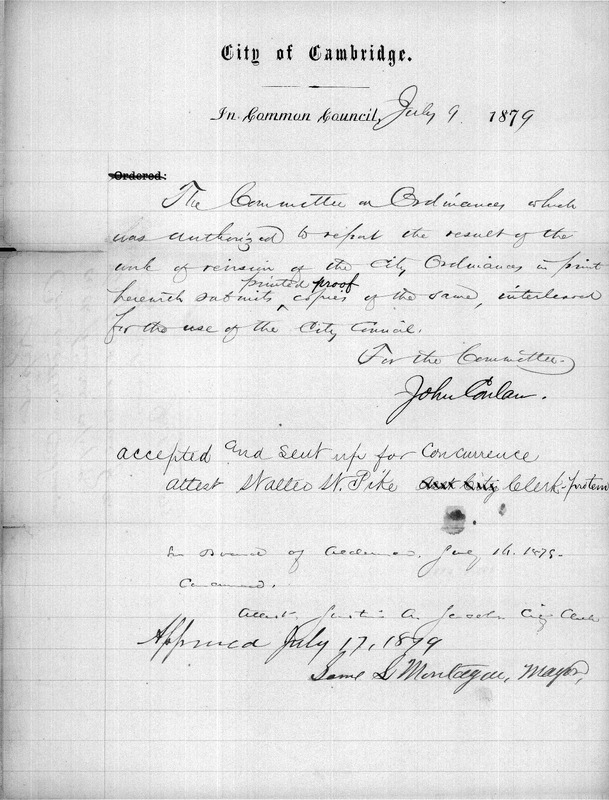 City of Cambridge.
In Common Council, July 9 1879
Ordered:
The Committee on Ordinances which
was authorized to report the result of the
work of revision of the City Ordinances in print
printed proof
herewith submits copies of the same, interleaved
for the use of the City Council.
For the Committee
John Conlan.
accepted and sent up for concurrence
attest Walter W. Pike Asst City Clerk protem
In Board of Aldermen. July 16. 1879.
Concurred.
Attest Justin A. Jacobs City Clerk
Approved July 17, 1879
Montague, Mayor,